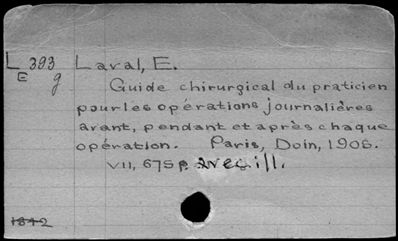 L 393 Laval, E.
E g Guide chirurgical du praticien
pour les opérations journalières
avant, pendant et après chaque
opération. Paris, Doin, 1906.
VII, 675 p. avec ill.
1842